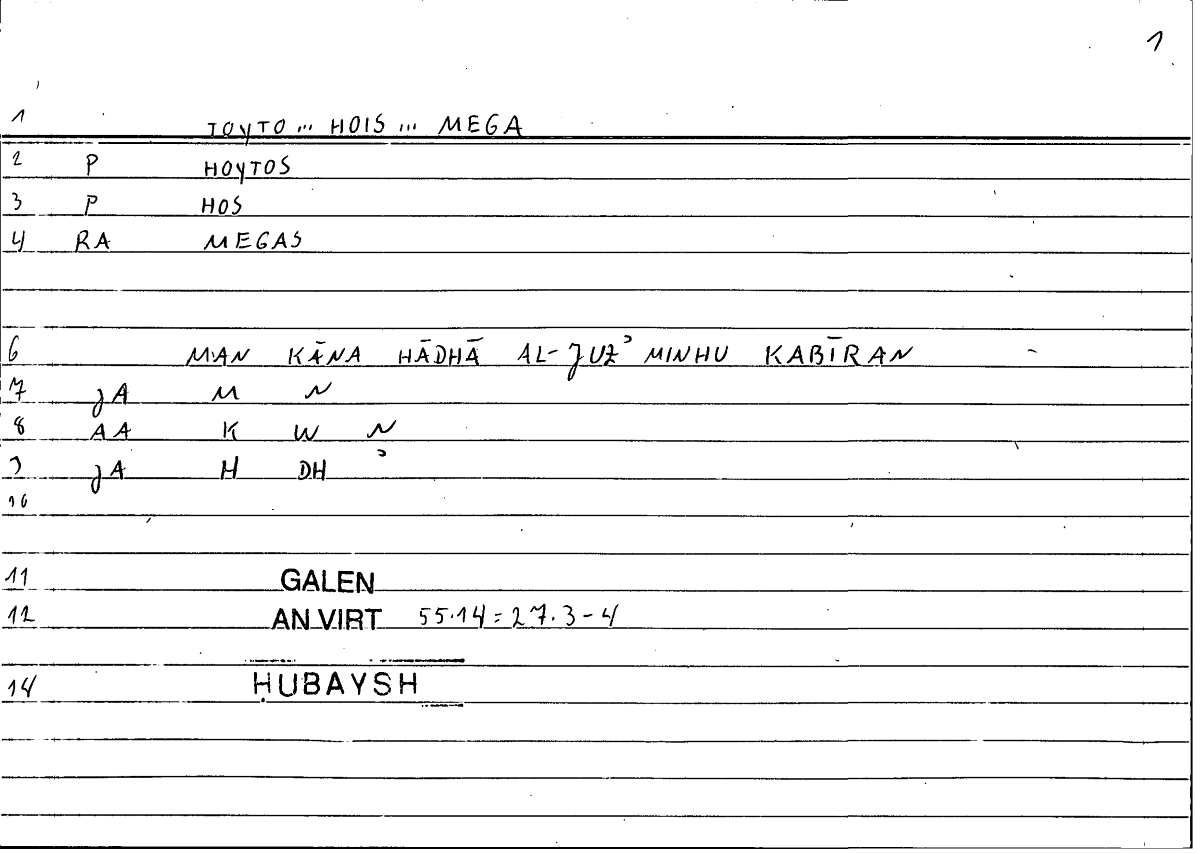 1
1 TOYTO ... HOIS ... MEGA
2 P HOYTOS
3 P HOS
4 RA MEGAS
6 MAN KĀNA HĀDHĀ AL-JUZʾ MINHU KABĪRAN
7 JA M N
8 AA K W N
9 JA H DH ʾ
10
11 GALEN
12 AN VIRT 55.14 = 27.3-4
14 ḤUBAYSH